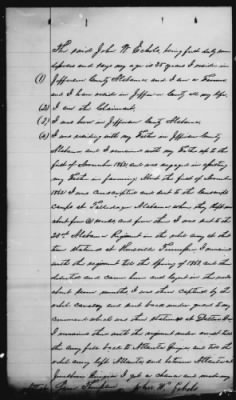 The said John W. Echols, being first duly sworn
deposes and says my age is 35 years I reside in
(1) Jefferson County Alabama and I am a Farmer
and I have resided in Jefferson County all my life,
(2) I am the Claimant,
(3) I was born in Jefferson County Alabama
(4) I was residing with my Father in Jefferson County
Alabama and I remained with my Father up to the
first of November 1862 and was engaged in assisting
my Father in farming About the first of November
1862 I was conscripted and sent to the conscript
camps at Talladega Alabama where they kept me
about four weeks and from there I was sent to the
20th Alabama Regiment in the rebel army at that
time stationed at Knoxville Tennessee I remained
with the regiment till the Spring of 1863 and then
deserted and came home and layed in the woods
about four months I was then captured by the
rebel cavalry and sent back under guard to my
command which was then stationed at Dalton Ga
I remained there with the regiment under arrest till
the army fell back to Atlanta Georgia and till the
rebel army left Atlanta and between Atlanta and
Jonesboro Georgia I got a chance and made my
John W. Echols